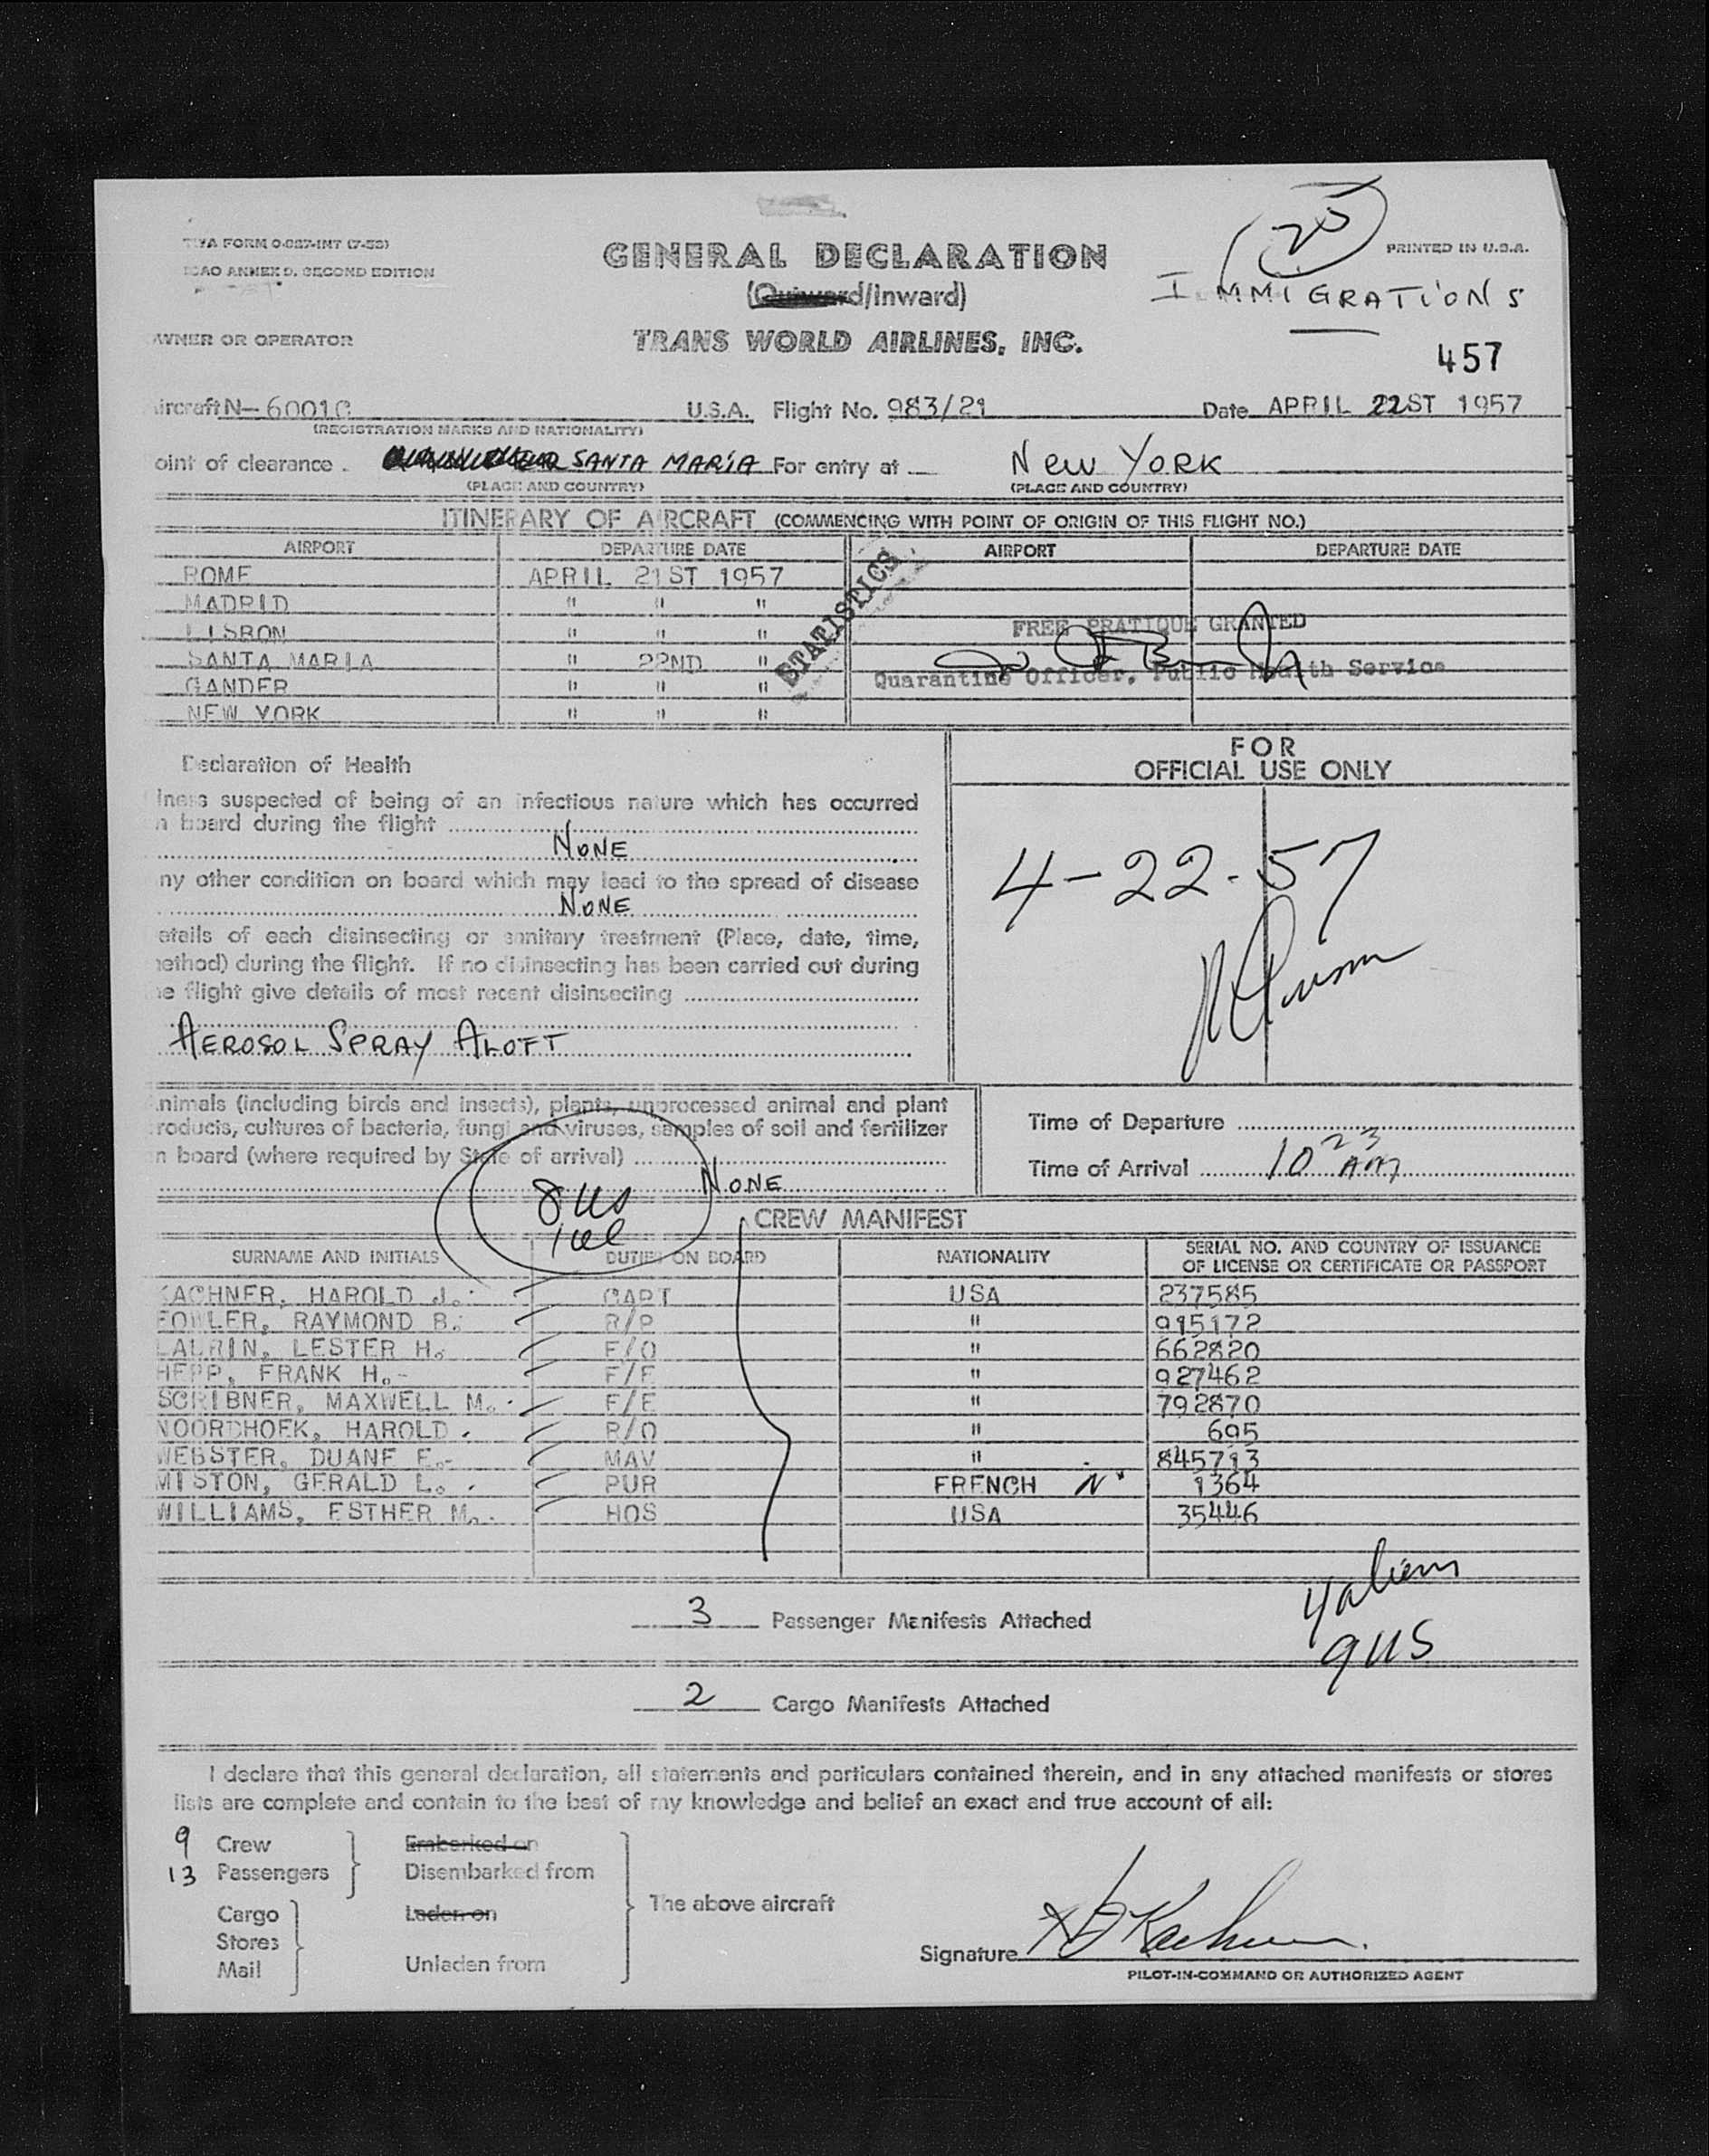 TWA FORM O-927-INT (7-53)
ICAO ANNEX 9, SECOND EDITION
GENERAL DECLARATION
(Outward/Inward)
PRINTED IN U.S.A.
25
IMMIGRATIONS
OWNER OR OPERATOR
TRANS WORLD AIRLINES, INC.
457
Aircraft N-6001C U.S.A. Flight No. 983/21 Date APRIL 22ST 1957
(REGISTRATION MARKS AND NATIONALITY)
Point of clearance SANTA MARIA For entry at New YORK
(PLACE AND COUNTRY) (PLACE AND COUNTRY)
ITINERARY OF AIRCRAFT (COMMENCING WITH POINT OF ORIGIN OF THIS FLIGHT NO.)
AIRPORT DEPARTURE DATE AIRPORT DEPARTURE DATE
ROME APRIL 21ST 1957
MADRID " " "
LISBON " " "
SANTA MARIA " 22ND "
GANDER " " "
NEW YORK " " "
STATISTICS
FREE PRATIQUE GRANTED
Quarantine Officer, Public Health Service
Declaration of Health
Illness suspected of being of an infectious nature which has occurred
on board during the flight
NONE
Any other condition on board which may lead to the spread of disease
NONE
Details of each disinsecting or sanitary treatment (Place, date, time,
method) during the flight. If no disinsecting has been carried out during
the flight give details of most recent disinsecting
AEROSOL SPRAY ALOFT
FOR
OFFICIAL USE ONLY
4-22-57
Animals (including birds and insects), plants, unprocessed animal and plant
products, cultures of bacteria, fungi and viruses, samples of soil and fertilizer
on board (where required by State of arrival)
NONE
Time of Departure
Time of Arrival 10 23 AM
8 US
CREW MANIFEST
SURNAME AND INITIALS DUTIES ON BOARD NATIONALITY SERIAL NO. AND COUNTRY OF ISSUANCE
OF LICENSE OR CERTIFICATE OR PASSPORT
KACHNER, HAROLD J. CAPT USA 237585
FOWLER, RAYMOND B. R/P " 915172
LAURIN, LESTER H. F/O " 662820
HEPP, FRANK H. F/E " 927462
SCRIBNER, MAXWELL M. F/E " 792870
NOORDHOEK, HAROLD R/O " 695
WEBSTER, DUANE E. NAV " 845713
MISTON, GERALD L. PUR FRENCH N 1364
WILLIAMS, ESTHER M. HOS USA 35446
3 Passenger Manifests Attached
4 aliens
9 US
2 Cargo Manifests Attached
I declare that this general declaration, all statements and particulars contained therein, and in any attached manifests or stores
lists are complete and contain to the best of my knowledge and belief an exact and true account of all:
9 Crew Embarked on
13 Passengers Disembarked from
The above aircraft
Cargo Laden on
Stores
Mail Unladen from
Signature H J Kachner
PILOT-IN-COMMAND OR AUTHORIZED AGENT